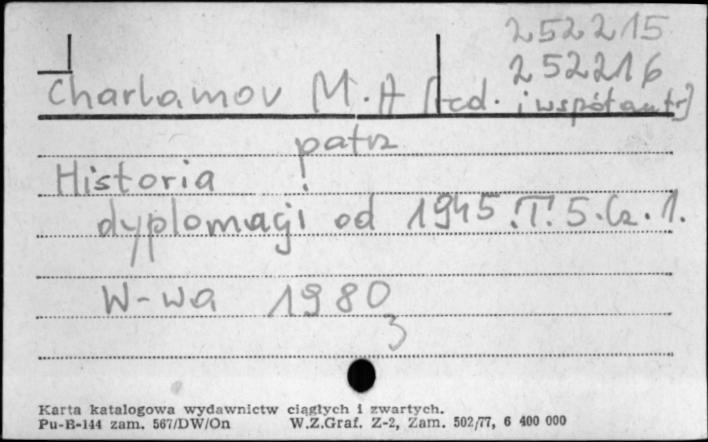 252215
252216
Charlamov M.A [red. i współautr]
patrz
Historia
dyplomacji od 1945. T. 5. Cz. 1.
W-wa 1980
3
Karta katalogowa wydawnictw ciągłych i zwartych.
Pu-B-144 zam. 567/DW/On W.Z.Graf. Z-2, Zam. 502/77, 6 400 000